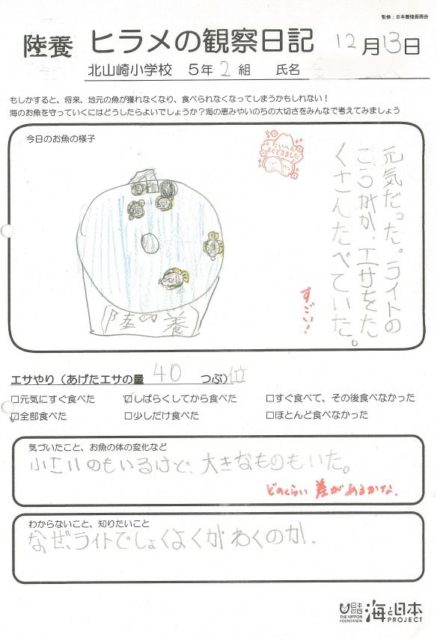 監修：日本養殖振興会
陸養 ヒラメの観察日記 12月13日
北山崎小学校 5年2組 氏名
もしかすると、将来、地元の魚が獲れなくなり、食べられなくなってしまうかもしれない！
海のお魚を守っていくにはどうしたらよいでしょうか？海の恵みやいのちの大切さをみんなで考えてみましょう
今日のお魚の様子
元気だった。ライトの
こうかが、エサをた
くさんたべていた。
すごい！
陸の養
エサやり（あげたエサの量 40 つぶ）位
□元気にすぐ食べた ☑しばらくしてから食べた □すぐ食べて、その後食べなかった
☑全部食べた □少しだけ食べた □ほとんど食べなかった
気づいたこと、お魚の体の変化など
小さいのもいるけど、大きなものもいた。
どのくらい差があるかな。
わからないこと、知りたいこと
なぜ、ライトでしょくよくがわくのか.
日本財団
THE NIPPON FOUNDATION
海と日本
PROJECT